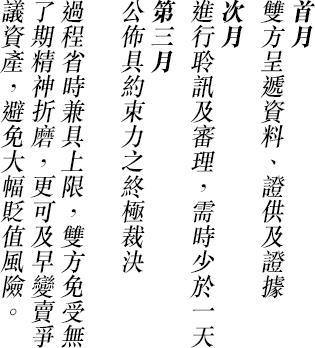 首月
雙方呈遞資料、證供及證據
次月
進行聆訊及審理，需時少於一天
第三月
公佈具約束力之終極裁決
過程省時兼具上限，雙方免受無
了期精神折磨，更可及早變賣爭
議資產，避免大幅貶值風險。